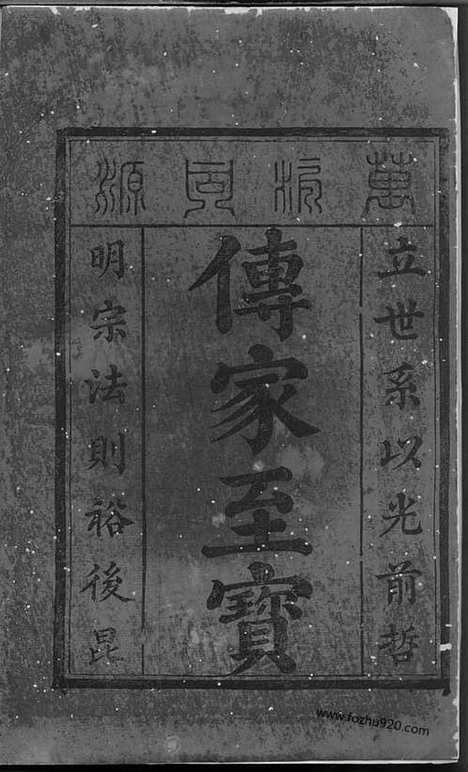 萬派同源
立世系以光前哲
傳家至寶
明宗法則裕後昆
www.fozhu920.com